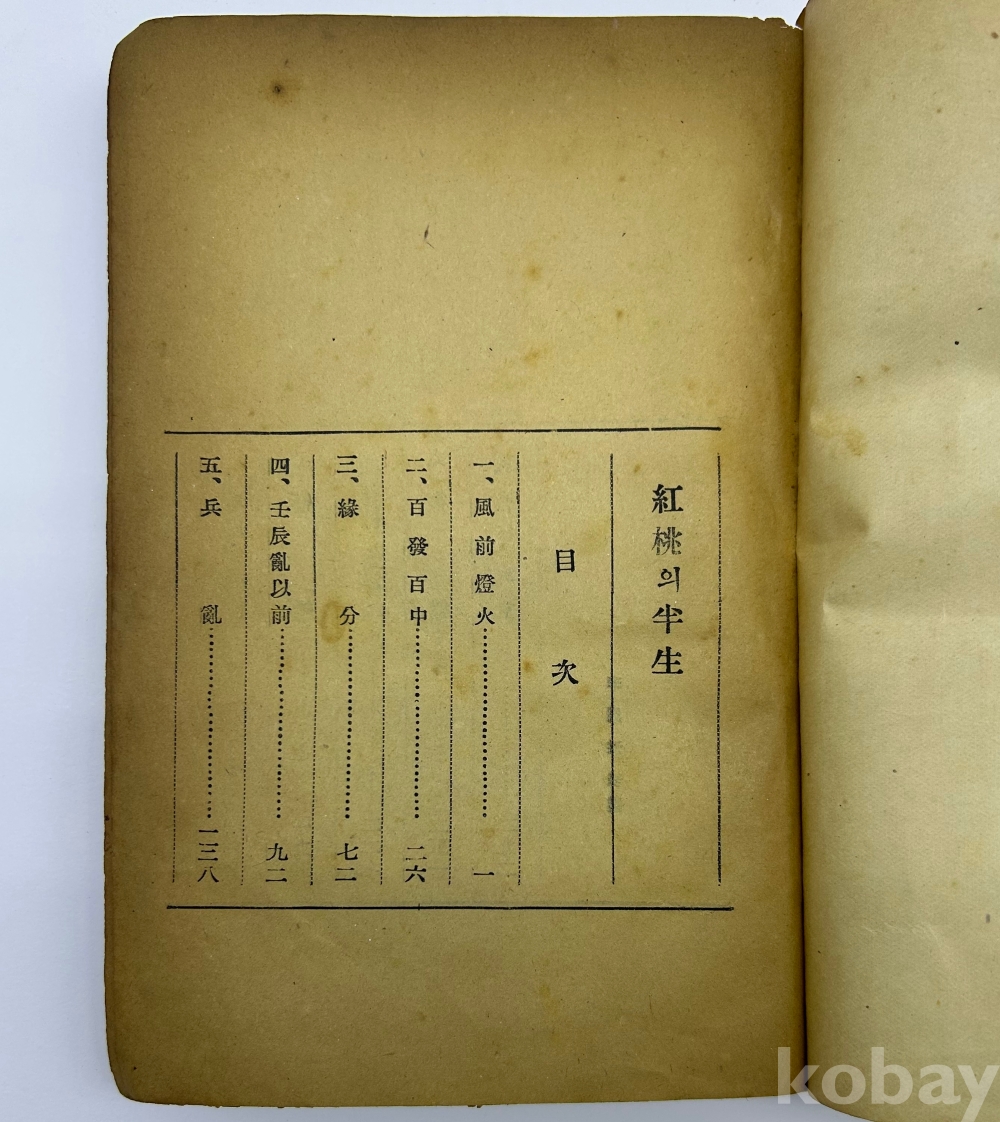 紅桃의半生
目次
一、風前燈火…………一
二、百發百中…………二六
三、緣分…………七二
四、壬辰亂以前…………九二
五、兵亂…………一三八
kobay